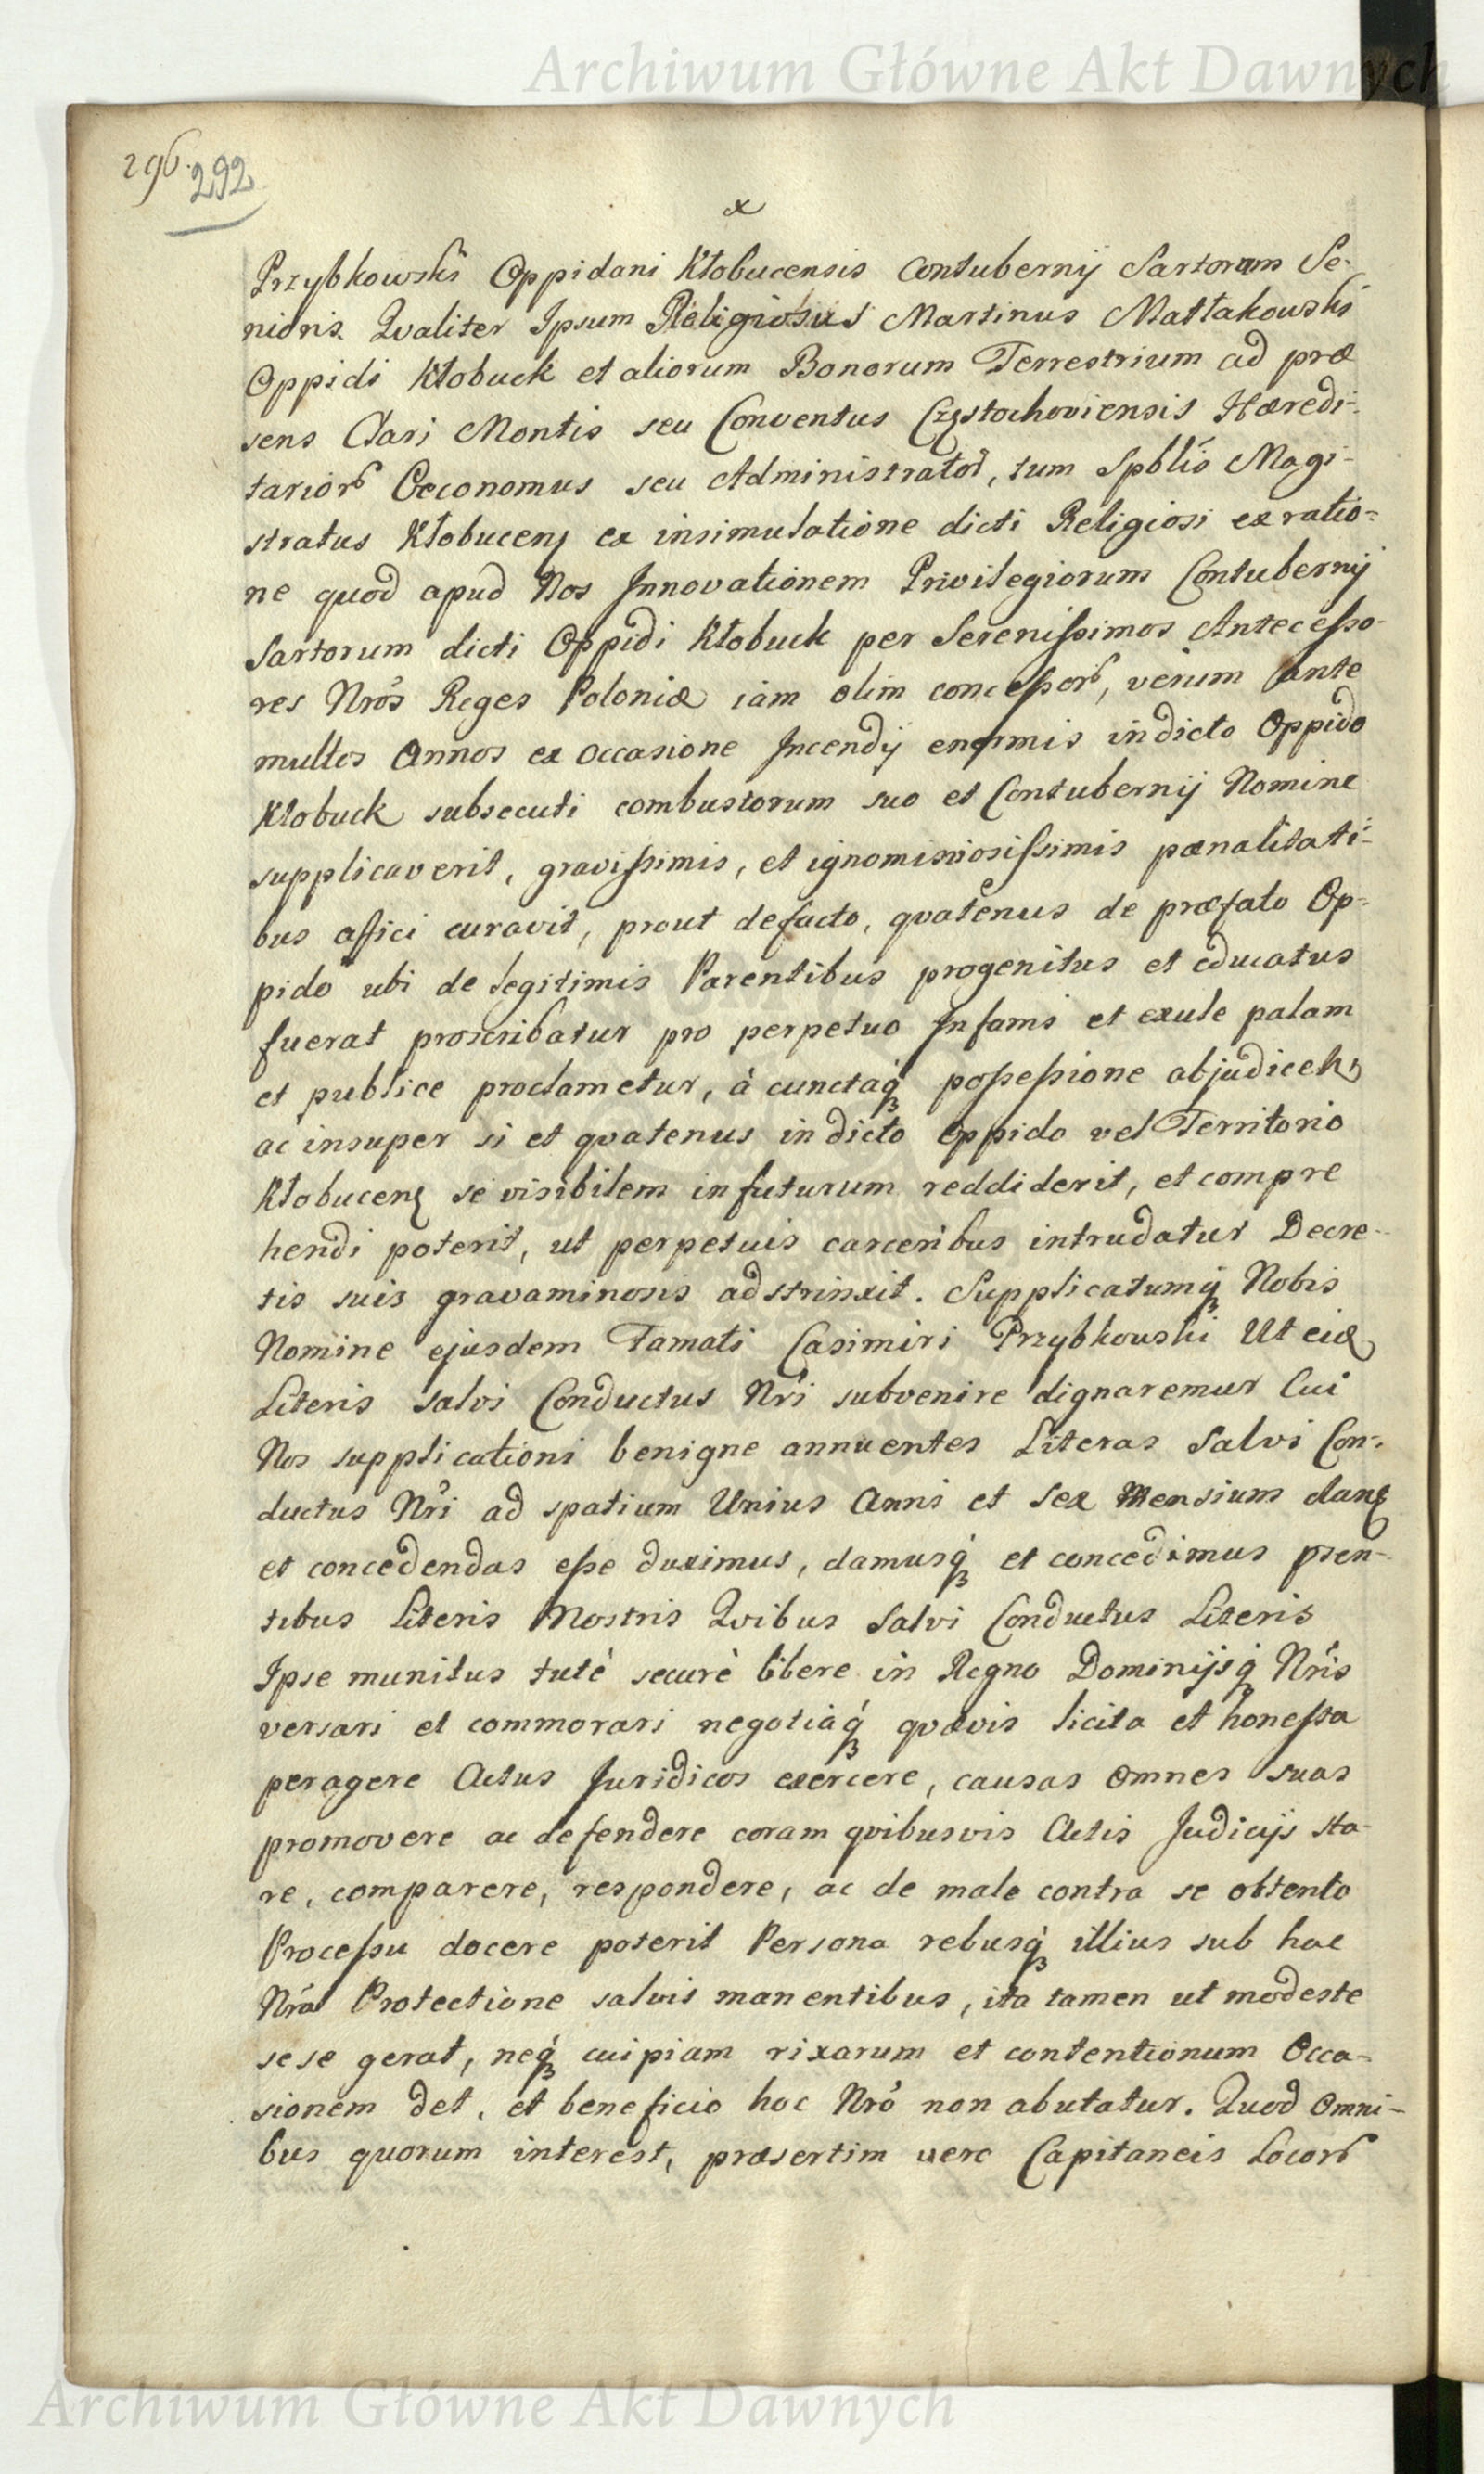 Archiwum Główne Akt Dawnych
296. 292
x
Przybkowski Oppidani Kłobucensis Contubernij Sartorum Se-
nioris. Qvaliter Ipsum Religiosus Martinus Mattakowski
Oppidi Kłobuck et aliorum Bonorum Terrestrium ad præ
sens Clari Montis seu Conventus Częstochoviensis Hæredi-
tarior̃ Oeconomus seu Administrator, tum Spblĩs Magi-
stratus Kłobucen̄ ex insimulatione dicti Religiosi ex ratio=
ne quod apud Nos Innovationem Privilegiorum Contubernij
Sartorum dicti Oppidi Kłobuck per Serenißimos Anteceßo-
res Nrõs Reges Poloniæ iam olim conceßor̃, verùm ante
multos Annos ex occasione Incendij enormis in dicto Oppido
Kłobuck subsecuti combustorum suo et Contubernij Nomine
supplicaverit, gravißimis, et ignominiosißimis pænalitati-
bus affici curavit, prout defacto, qvatenus de præfato Op-
pido ubi de legitimis Parentibus progenitus et educatus
fuerat proscribatur pro perpetuo Infami et exule palam
et publice proclametur, à cunctaq́ʒ poßeßione abjudicetr̃
ac insuper si et qvatenus in dicto Oppido vel Territorio
Kłobucen̄ se visibilem in futurum reddiderit, et compre
hendi poterit, ut perpetuis carceribus intrudatur Decre-
tis suis gravaminosis adstrinxit. Supplicatumqʒ Nobis
Nomine ejusdem Famati Casimiri Przybkowski Ut eid̃
Literis salvi Conductus Nrĩ subvenire dignaremur Cui
Nos supplicationi benigne annuentes Literas Salvi Con-
ductus Nrĩ ad spatium Unius Anni et sex Mensium dan̄
et concedendas eße duximus, damusq́ʒ et concedimus pr̃sen-
tibus Literis Nostris Qvibus Salvi Conductus Literis
Ipse munitus tutè securè libere in Regno Dominijsq́ʒ Nrĩs
versari et commorari negotiaq́ʒ qvævis licita et honesta
peragere Actus Juridicos exercere, causas omnes suas
promovere ac defendere coram qvibusvis Actis Judicijs sta-
re, comparere, respondere, ac de male contra se obtento
Proceßu docere poterit Persona rebusq́ʒ illius sub hac
Nrã Protectione salvis manentibus, ita tamen ut modeste
sese gerat, neq́ʒ cuipiam rixarum et contentionum Occa=
sionem det, et beneficio hoc Nrõ non abutatur. Quod Omni-
bus quorum interest, præsertim vero Capitaneis Locor̃
Archiwum Główne Akt Dawnych